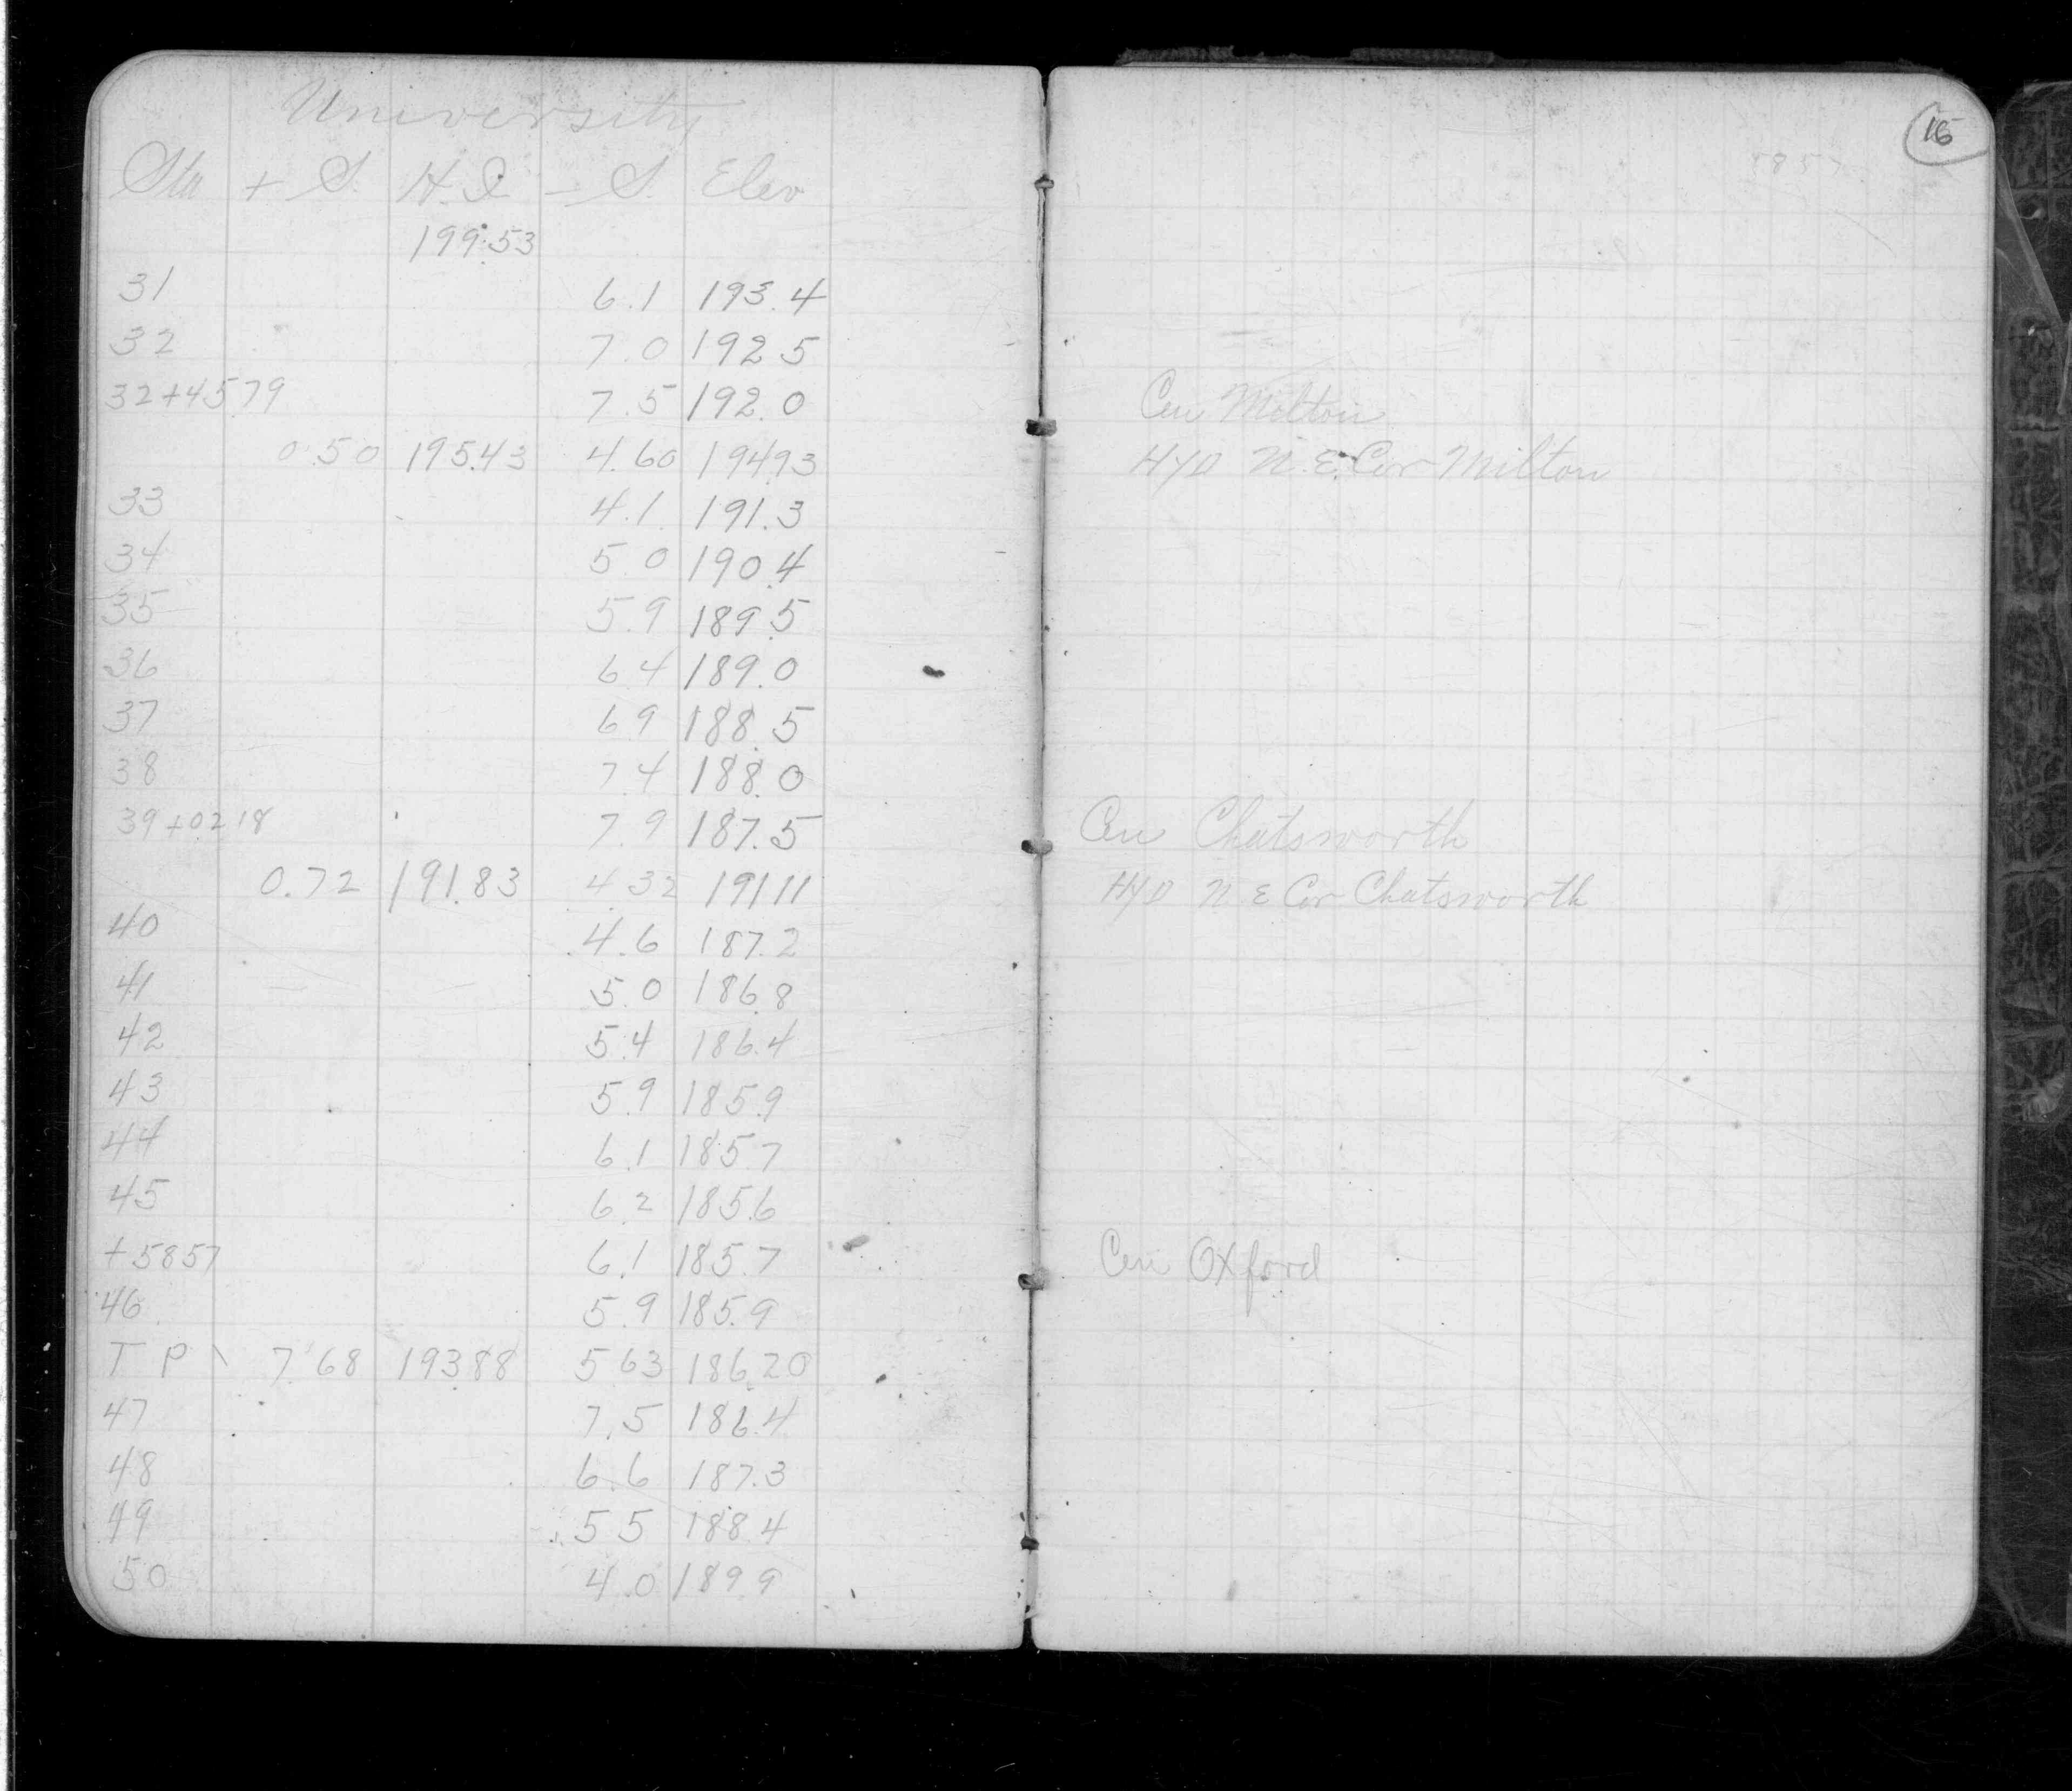 University
Sta + S. H.I. - S. Elev
199.53
31 6.1 193.4
32 7.0 192.5
32+45.79 7.5 192.0 Cen Milton
0.50 195.43 4.60 194.93 HYD N.E. Cor Milton
33 4.1 191.3
34 5.0 190.4
35 5.9 189.5
36 6.4 189.0
37 6.9 188.5
38 7.4 188.0
39+02.18 7.9 187.5 Cen Chatsworth
0.72 191.83 4.32 191.11 HYD N E Cor Chatsworth
40 4.6 187.2
41 5.0 186.8
42 5.4 186.4
43 5.9 185.9
44 6.1 185.7
45 6.2 185.6
+58.57 6.1 185.7 Cen Oxford
46 5.9 185.9
T P 7.68 193.88 5.63 186.20
47 7.5 186.4
48 6.6 187.3
49 5.5 188.4
50 4.0 189.9
16
5857